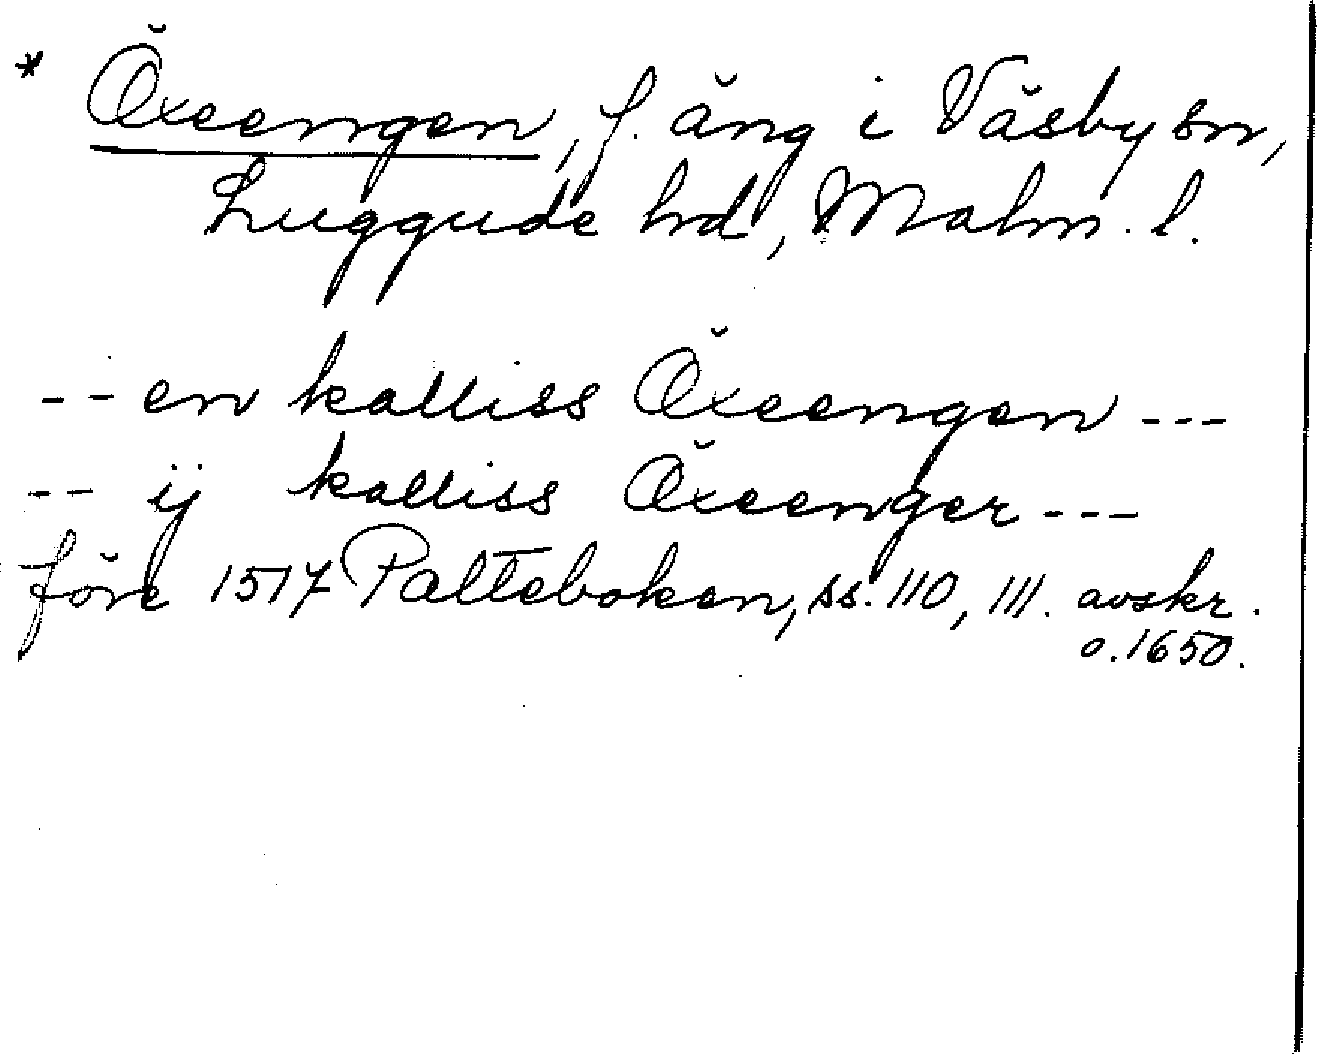 * Öxeengen, f. äng i Väsby sn,
Luggude hd, Malm. l.
-- en kalliss Öxeengen ---
-- ij kalliss Öxeenger ---
före 1517 Palteboken, ss. 110, 111. avskr.
o. 1650.